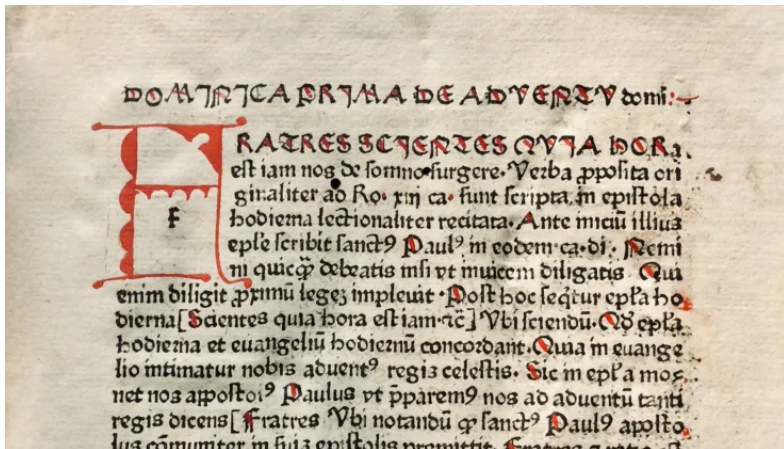 DOMINICA PRIMA DE ADVENTV domī
f
FRATRES SCIENTES QVIA HORa
est iam nos de somno surgere. Verba ꝓposita ori
ginaliter ad Ro. xiij ca. sunt scripta. in epistola
hodierna lectionaliter recitata. Ante iniciū illius
ep̄le scribit sanctꝰ Paulꝰ in eodem. ca. di. Nemi
ni quicq̄ꝫ debeatis nisi vt inuicem diligatis. Qui
enim diligit ꝓximū legeꝫ impleuit. Post hoc seq̄tur ep̄ła ho
dierna [Scientes quia hora est iam ⁊c̄] Vbi sciendū. Qđ ep̄ła
hodierna et euangeliū hodiernū concordant. Quia in euange
lio intimatur nobis aduentꝰ regis celestis. Sic in ep̄ł a mo
net nos appostolꝰ Paulus vt p̄paremꝰ nos ad aduentū tanti
regis dicens [Fratres Vbi notandū ꝙ sanctꝰ Paulꝰ aposto
lus cōmuniter in suis epistolis premittit. Fratres